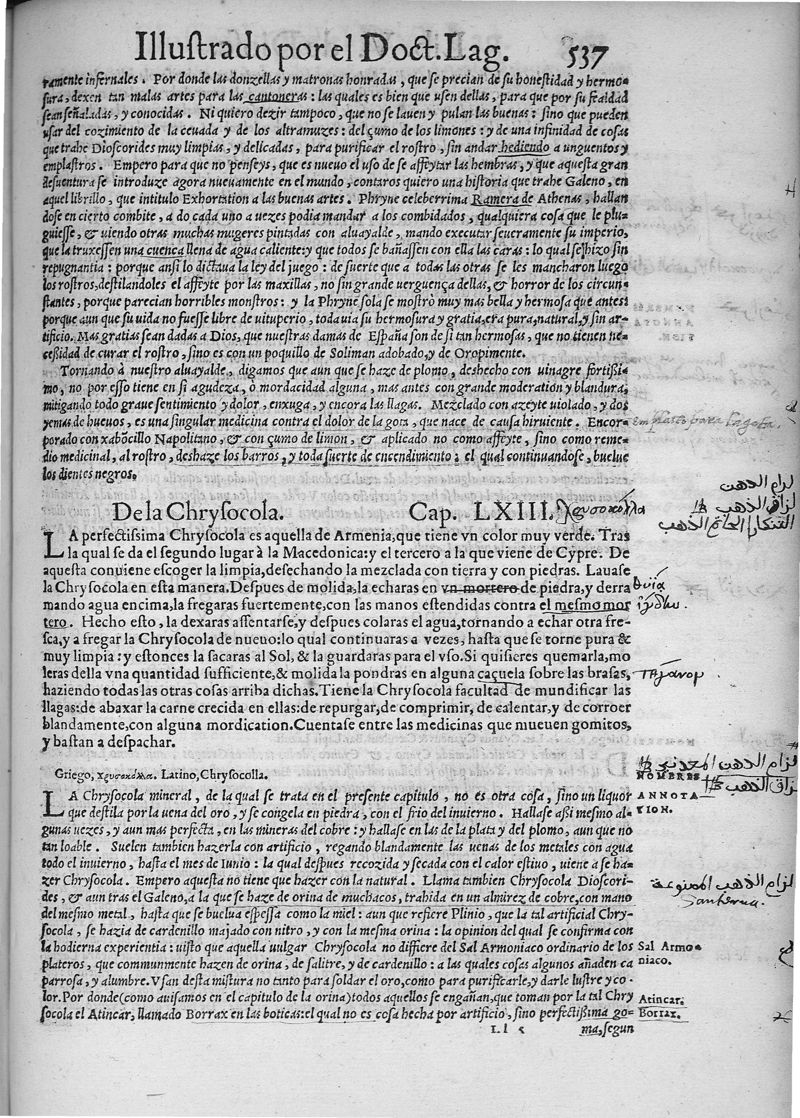 Illustrado por el Doct. Lag. 537
ramente infernales. Por donde las donzellas y matronas honradas, que se precian de su honestidad y hermo-
sura, dexen tan malas artes para las cantoneras: las quales es bien que usen dellas, para que por su fealdad
sean señaladas, y conocidas. Ni quiero dezir tampoco, que no se lauen y pulan las buenas: sino que pueden
usar del cozimiento de la ceuada y de los altramuzes: del çumo de los limones: y de una infinidad de cosas
que trahe Dioscorides muy limpias, y delicadas, para purificar el rostro, sin andar hediendo a unguentos y
emplastros. Empero para que no penseys, que es nueuo el uso de se affeytar las hembras, y que aquesta gran
desuentura se introduze agora nueuamente en el mundo, contaros quiero una historia que trahe Galeno, en
aquel librillo, que intitulo Exhortation a las buenas artes. Phryne celeberrima Ramera de Athenas, hallan
dose en cierto combite, a do cada uno a uezes podia mandar a los combidados, qualquiera cosa que le plu-
guiesse, & uiendo otras muchas mugeres pintadas con aluayalde, mando executar seueramente su imperio,
que la truxessen una cuenca llena de agua caliente: y que todos se bañassen con ella las caras: lo qual se hizo sin
repugnantia: porque ansi lo dictaua la ley del juego: de suerte que a todas las otras se les mancharon luego
los rostros, destilandoles el affeyte por las maxillas, no sin grande uerguença dellas, & horror de los circun-
stantes, porque parecian horribles monstros: y la Phryne sola se mostrò muy mas bella y hermosa que antes:
porque aun que su uida no fuesse libre de uituperio, toda uia su hermosura y gratia, era pura, natural, y sin ar-
tificio. Mas gratias sean dadas a Dios, que nuestras damas de España son de si tan hermosas, que no tienen ne-
cessidad de curar el rostro, sino es con un poquillo de Soliman adobado, y de Oropimente.
Tornando à nuestro aluayalde, digamos que aun que se haze de plomo, deshecho con uinagre fortissi-
mo, no por esso tiene en si agudeza, o mordacidad alguna, mas antes con grande moderation y blandura,
mitigando todo graue sentimiento y dolor, enxuga, y encora las llagas. Mezclado con azeyte uiolado, y dos
yemas de hueuos, es una singular medicina contra el dolor de la gota, que nace de causa hiruiente. Encor-
emplasto para la gota.
porado con xaboncillo Napolitano, & con çumo de limon, & aplicado no como affeyte, sino como reme-
dio medicinal, al rostro, deshaze los barros, y toda suerte de encendimiento: el qual continuandose, buelue
los dientes negros.
لزام الذهن
لزاق الذهب
De la Chrysocola. Cap. LXIII. χρυσοκόλλα
LA perfectissima Chrysocola es aquella de Armenia, que tiene vn color muy verde. Tras
la qual se da el segundo lugar à la Macedonica: y el tercero a la que viene de Cypre. De
aquesta conuiene escoger la limpia, desechando la mezclada con tierra y con piedras. Lauase
la Chrysocola en esta manera. Despues de molida, la echaras en vn mortero de piedra, y derra
θυΐα
mando agua encima, la fregaras fuertemente, con las manos estendidas contra el mesmo mor
tero. Hecho esto, la dexaras assentarse, y despues colaras el agua, tornando a echar otra fre-
sca, y a fregar la Chrysocola de nueuo: lo qual continuaras a vezes, hasta que se torne pura &
muy limpia: y estonces la sacaras al Sol, & la guardaras para el vso. Si quisieres quemarla, mo
leras della vna quantidad sufficiente, & molida la pondras en alguna caçuela sobre las brasas,
τήγανον
haziendo todas las otras cosas arriba dichas. Tiene la Chrysocola facultad de mundificar las
llagas: de abaxar la carne crecida en ellas: de repurgar, de comprimir, de calentar, y de corroer
blandamente, con alguna mordication. Cuentase entre las medicinas que mueuen gomitos,
y bastan a despachar.
لزام الذهب المعدني
Griego, χρυσοκόλλα. Latino, Chrysocolla.
NOMBRES
لزاق الذهب
LA Chrysocola mineral, de la qual se trata en el presente capitulo, no es otra cosa, sino un liquor
ANNOTA
que destila por la uena del oro, y se congela en piedra, con el frio del inuierno. Hallase assi mesmo al-
TION.
gunas uezes, y aun mas perfecta, en las mineras del cobre: y hallase en las de la plata y del plomo, aun que no
tan loable. Suelen tambien hazerla con artificio, regando blandamente las uenas de los metales con agua
todo el inuierno, hasta el mes de Iunio: la qual despues recozida y secada con el calor estiuo, uiene a se ha-
zer Chrysocola. Empero aquesta no tiene que hazer con la natural. Llama tambien Chrysocola Dioscori-
لزام الذهب المصنوعة
des, & aun tras el Galeno, a la que se haze de orina de muchacos, trahida en un almirez de cobre, con mano
Santerna.
del mesmo metal, hasta que se buelua espessa como la miel: aun que refiere Plinio, que la tal artificial Chry-
socola, se hazia de cardenillo majado con nitro, y con la mesma orina: la opinion del qual se confirma con
la hodierna experientia: uisto que aquella uulgar Chrysocola no differe del Sal Armoniaco ordinario de los
Sal Armo-
plateros, que communmente hazen de orina, de salitre, y de cardenillo: a las quales cosas algunos añaden ca
niaco.
parrosa, y alumbre. Vsan desta mistura no tanto para soldar el oro, como para purificarle, y darle lustre y co-
lor. Por donde (como auisamos en el capitulo de la orina) todos aquellos se engañan, que toman por la tal Chry
Atincar.
socola el Atincar, llamado Borrax en las boticas: el qual no es cosa hecha por artificio, sino perfectissima go-
Borrax.
Ll 5 ma, segun